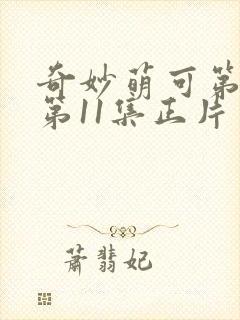 奇妙萌可第
第11集正片
萧翡妃